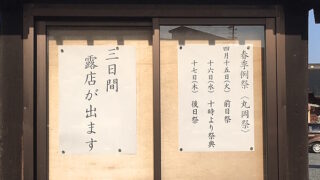 春季例祭(丸岡祭)
四月十五日(火) 前日祭
十六日(水) 十時より祭典
十七日(木) 後日祭
三日間
露店が出ます